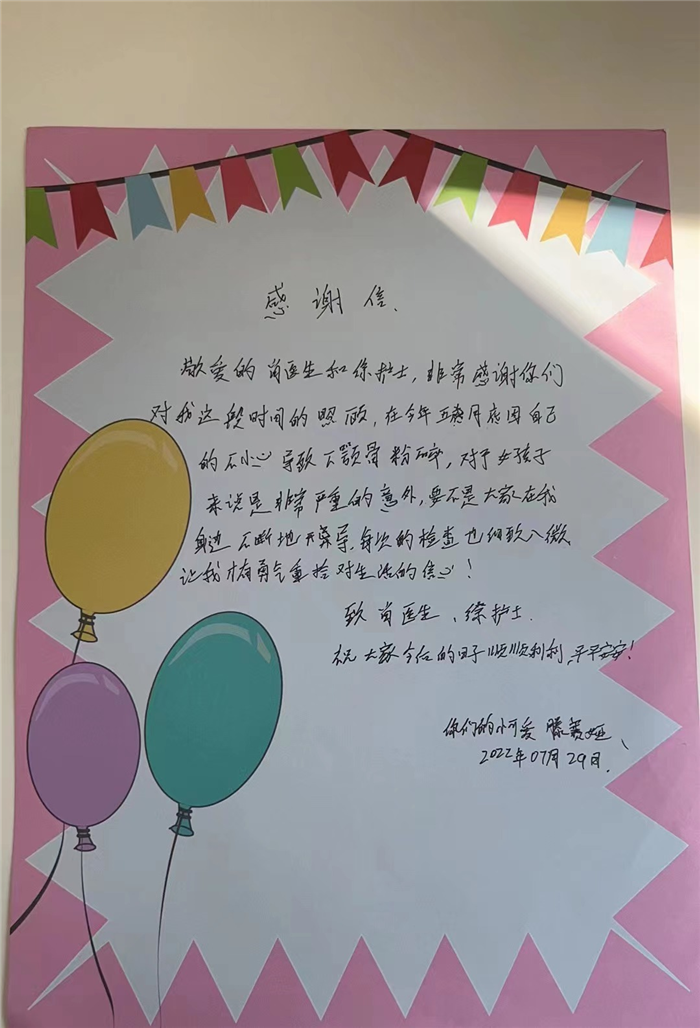 感谢信.
敬爱的肖医生和徐护士,非常感谢你们
对我这段时间的照顾,在今年五月底因自己
的不小心导致下颚骨粉碎,对于女孩子
来说是非常严重的意外,要不是大家在我
身边不断地开导,每次的检查也细致入微
让我才有勇气重拾对生活的信心!
致肖医生、徐护士.
祝大家今后的日子顺顺利利,平平安安!
你们的小可爱 滕
2022年07月29日.